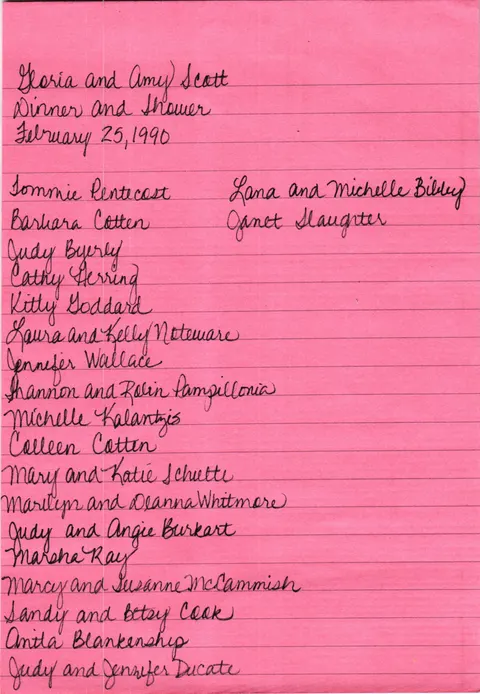 Gloria and Amy Scott
Dinner and Shower
February 25, 1990
Tommie Pentecost
Barbara Cotten
Judy Byerly
Cathy Herring
Kitty Goddard
Laura and Kelly Noteware
Jennifer Wallace
Shannon and Robin Pampillonia
Michelle Kalantzis
Colleen Cotten
Mary and Katie Schuette
Marilyn and Deanna Whitmore
Judy and Angie Burkart
Marsha Ray
Marcy and Susanne McCammish
Sandy and Betsy Cook
Anita Blankenship
Judy and Jennifer Ducate
Lana and Michelle Bilsley
Janet Slaughter